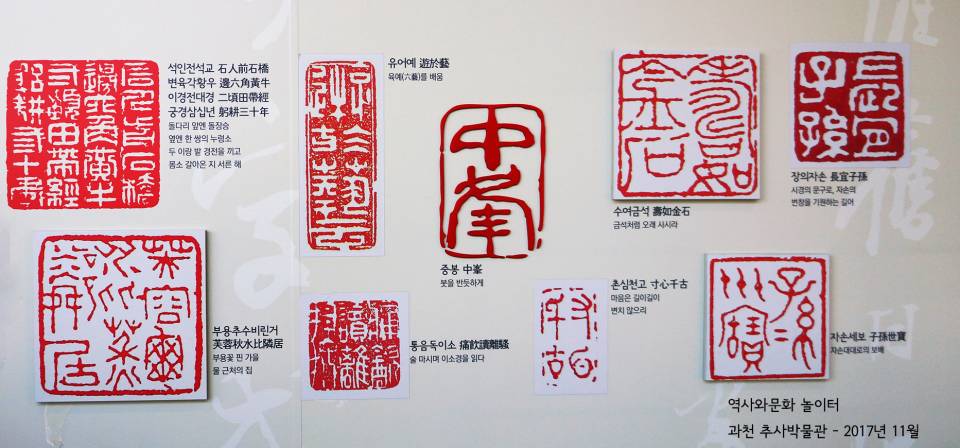 석인전석교 石人前石橋
변육각황우 邊六角黃牛
이경전대경 二頃田帶經
궁경삼십년 躬耕三十年
돌다리 앞엔 돌장승
옆엔 한 쌍의 누렁소
두 이랑 밭 경전을 끼고
몸소 갈아온 지 서른 해
유어예 遊於藝
육예(六藝)를 배움
중봉 中峯
붓을 반듯하게
中峯
수여금석 壽如金石
금석처럼 오래 사시라
壽如金石
장의자손 長宜子孫
시경의 문구로, 자손의
번창을 기원하는 길어
長宜子孫
부용추수비린거
芙蓉秋水比隣居
부용꽃 핀 가을
물 근처의 집
통음독이소 痛飮讀離騷
술 마시며 이소경을 읽다
촌심천고 寸心千古
마음은 길이길이
변치 않으리
자손세보 子孫世寶
자손대대로의 보배
역사와문화 놀이터
과천 추사박물관 - 2017년 11월